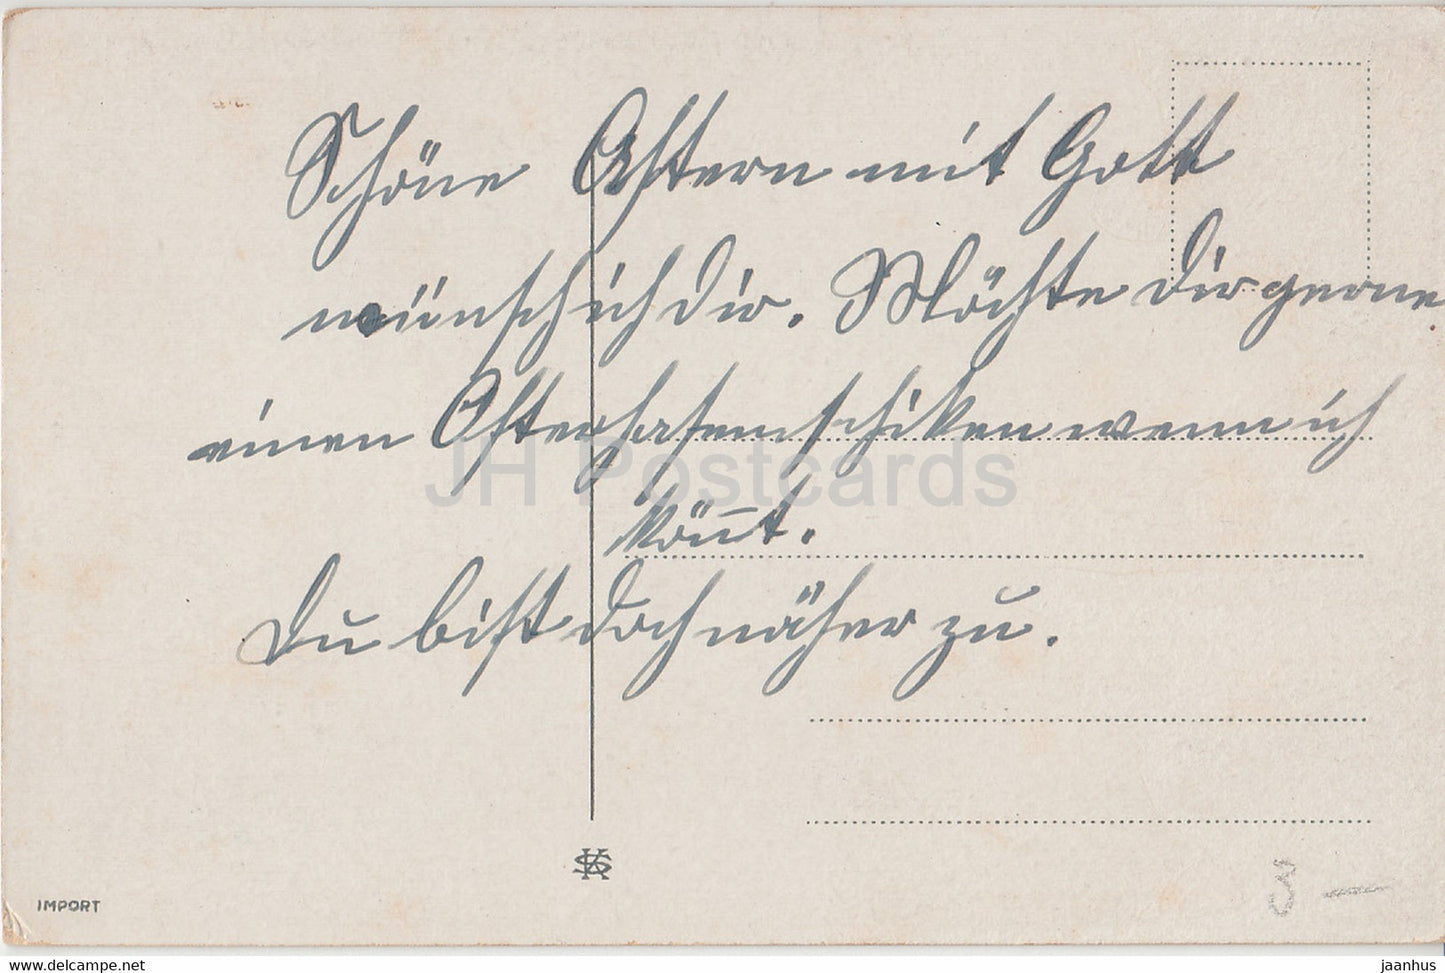 Schöne Ostern mit Gott
wünsch ich dir. Möchte Dir gerne
einen Osterhasen schiken wenn ich
könn̄t.
Du bist doch näher zu.
JH Postcards
KVS
IMPORT
3 —
www.delcampe.net
jaanhus